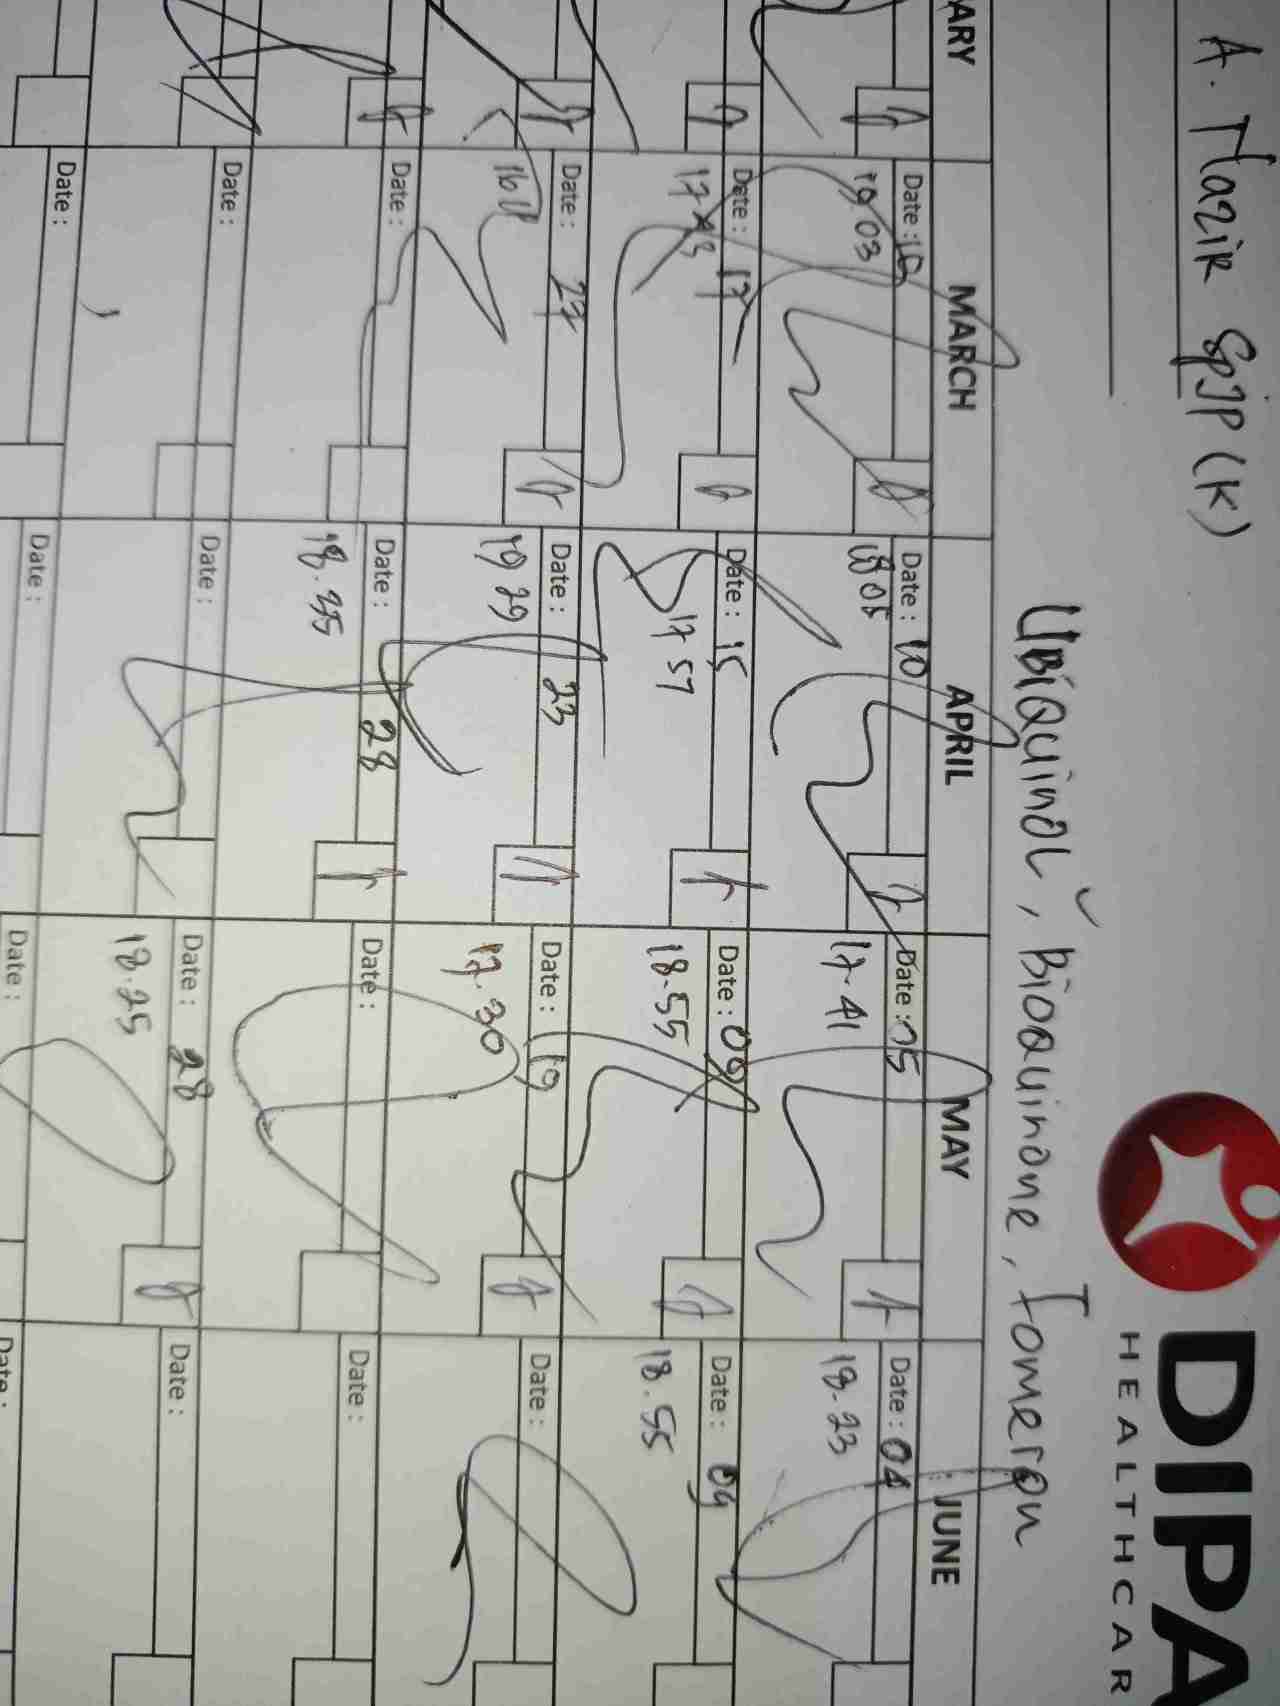 DIPA
HEALTHCAR
A. Nazir SpJP (K)
UBiquinol, Bioquinone, Tomeron
ARY MARCH APRIL MAY JUNE
Date: 16 Date: 10 Date: 05 Date: 04
19 03 17.41 18.23
Date: 17 Date: 15 Date: 09 Date: 09
17 57 18.55 18.55
Date: 27 Date: 23 Date: 19 Date:
19 29 17.30
Date: Date: 28 Date: Date:
Date: Date: Date: 28 Date:
18.25
Date: Date: Date: Date: